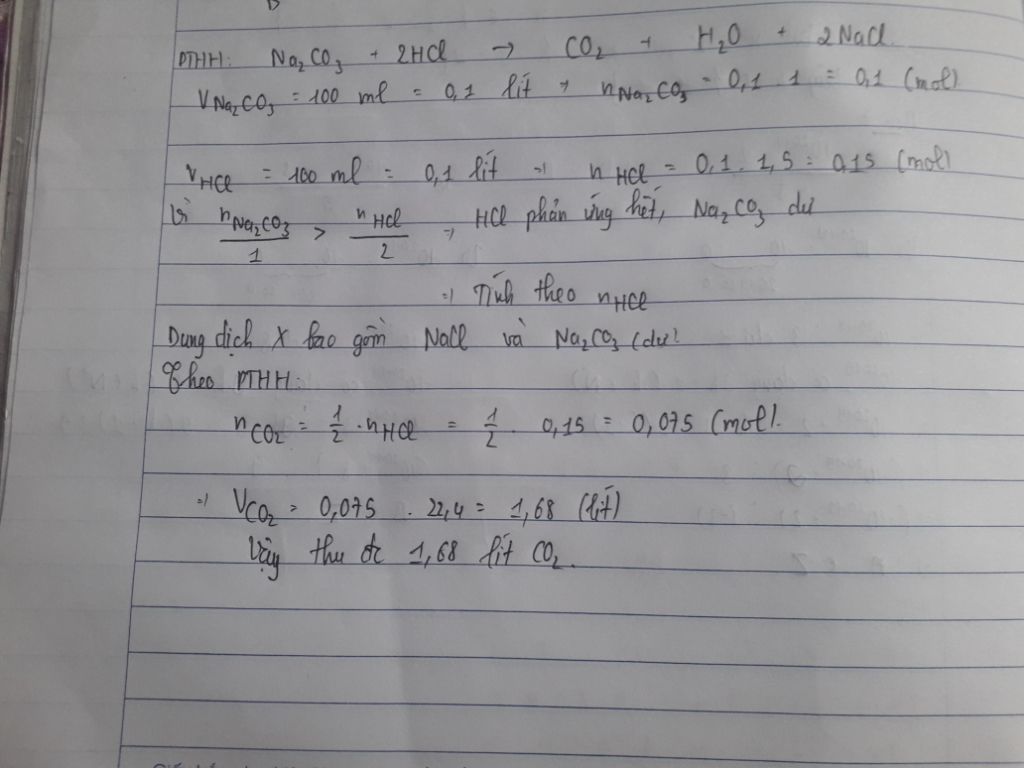 PTHH: Na₂CO₃ + 2HCl → CO₂ + H₂O + 2NaCl.
VNa₂CO₃ = 100 ml = 0,1 lít → nNa₂CO₃ = 0,1 . 1 = 0,1 (mol)
VHCl = 100 ml = 0,1 lít => nHCl = 0,1 . 1,5 = 0,15 (mol)
Vì nNa₂CO₃/1 > nHCl/2 => HCl phản ứng hết, Na₂CO₃ dư
=> Tính theo nHCl
Dung dịch X bao gồm NaCl và Na₂CO₃ (dư)
Theo PTHH:
nCO₂ = 1/2 . nHCl = 1/2 . 0,15 = 0,075 (mol).
=> VCO₂ = 0,075 . 22,4 = 1,68 (lít)
Vậy thu đc 1,68 lít CO₂.